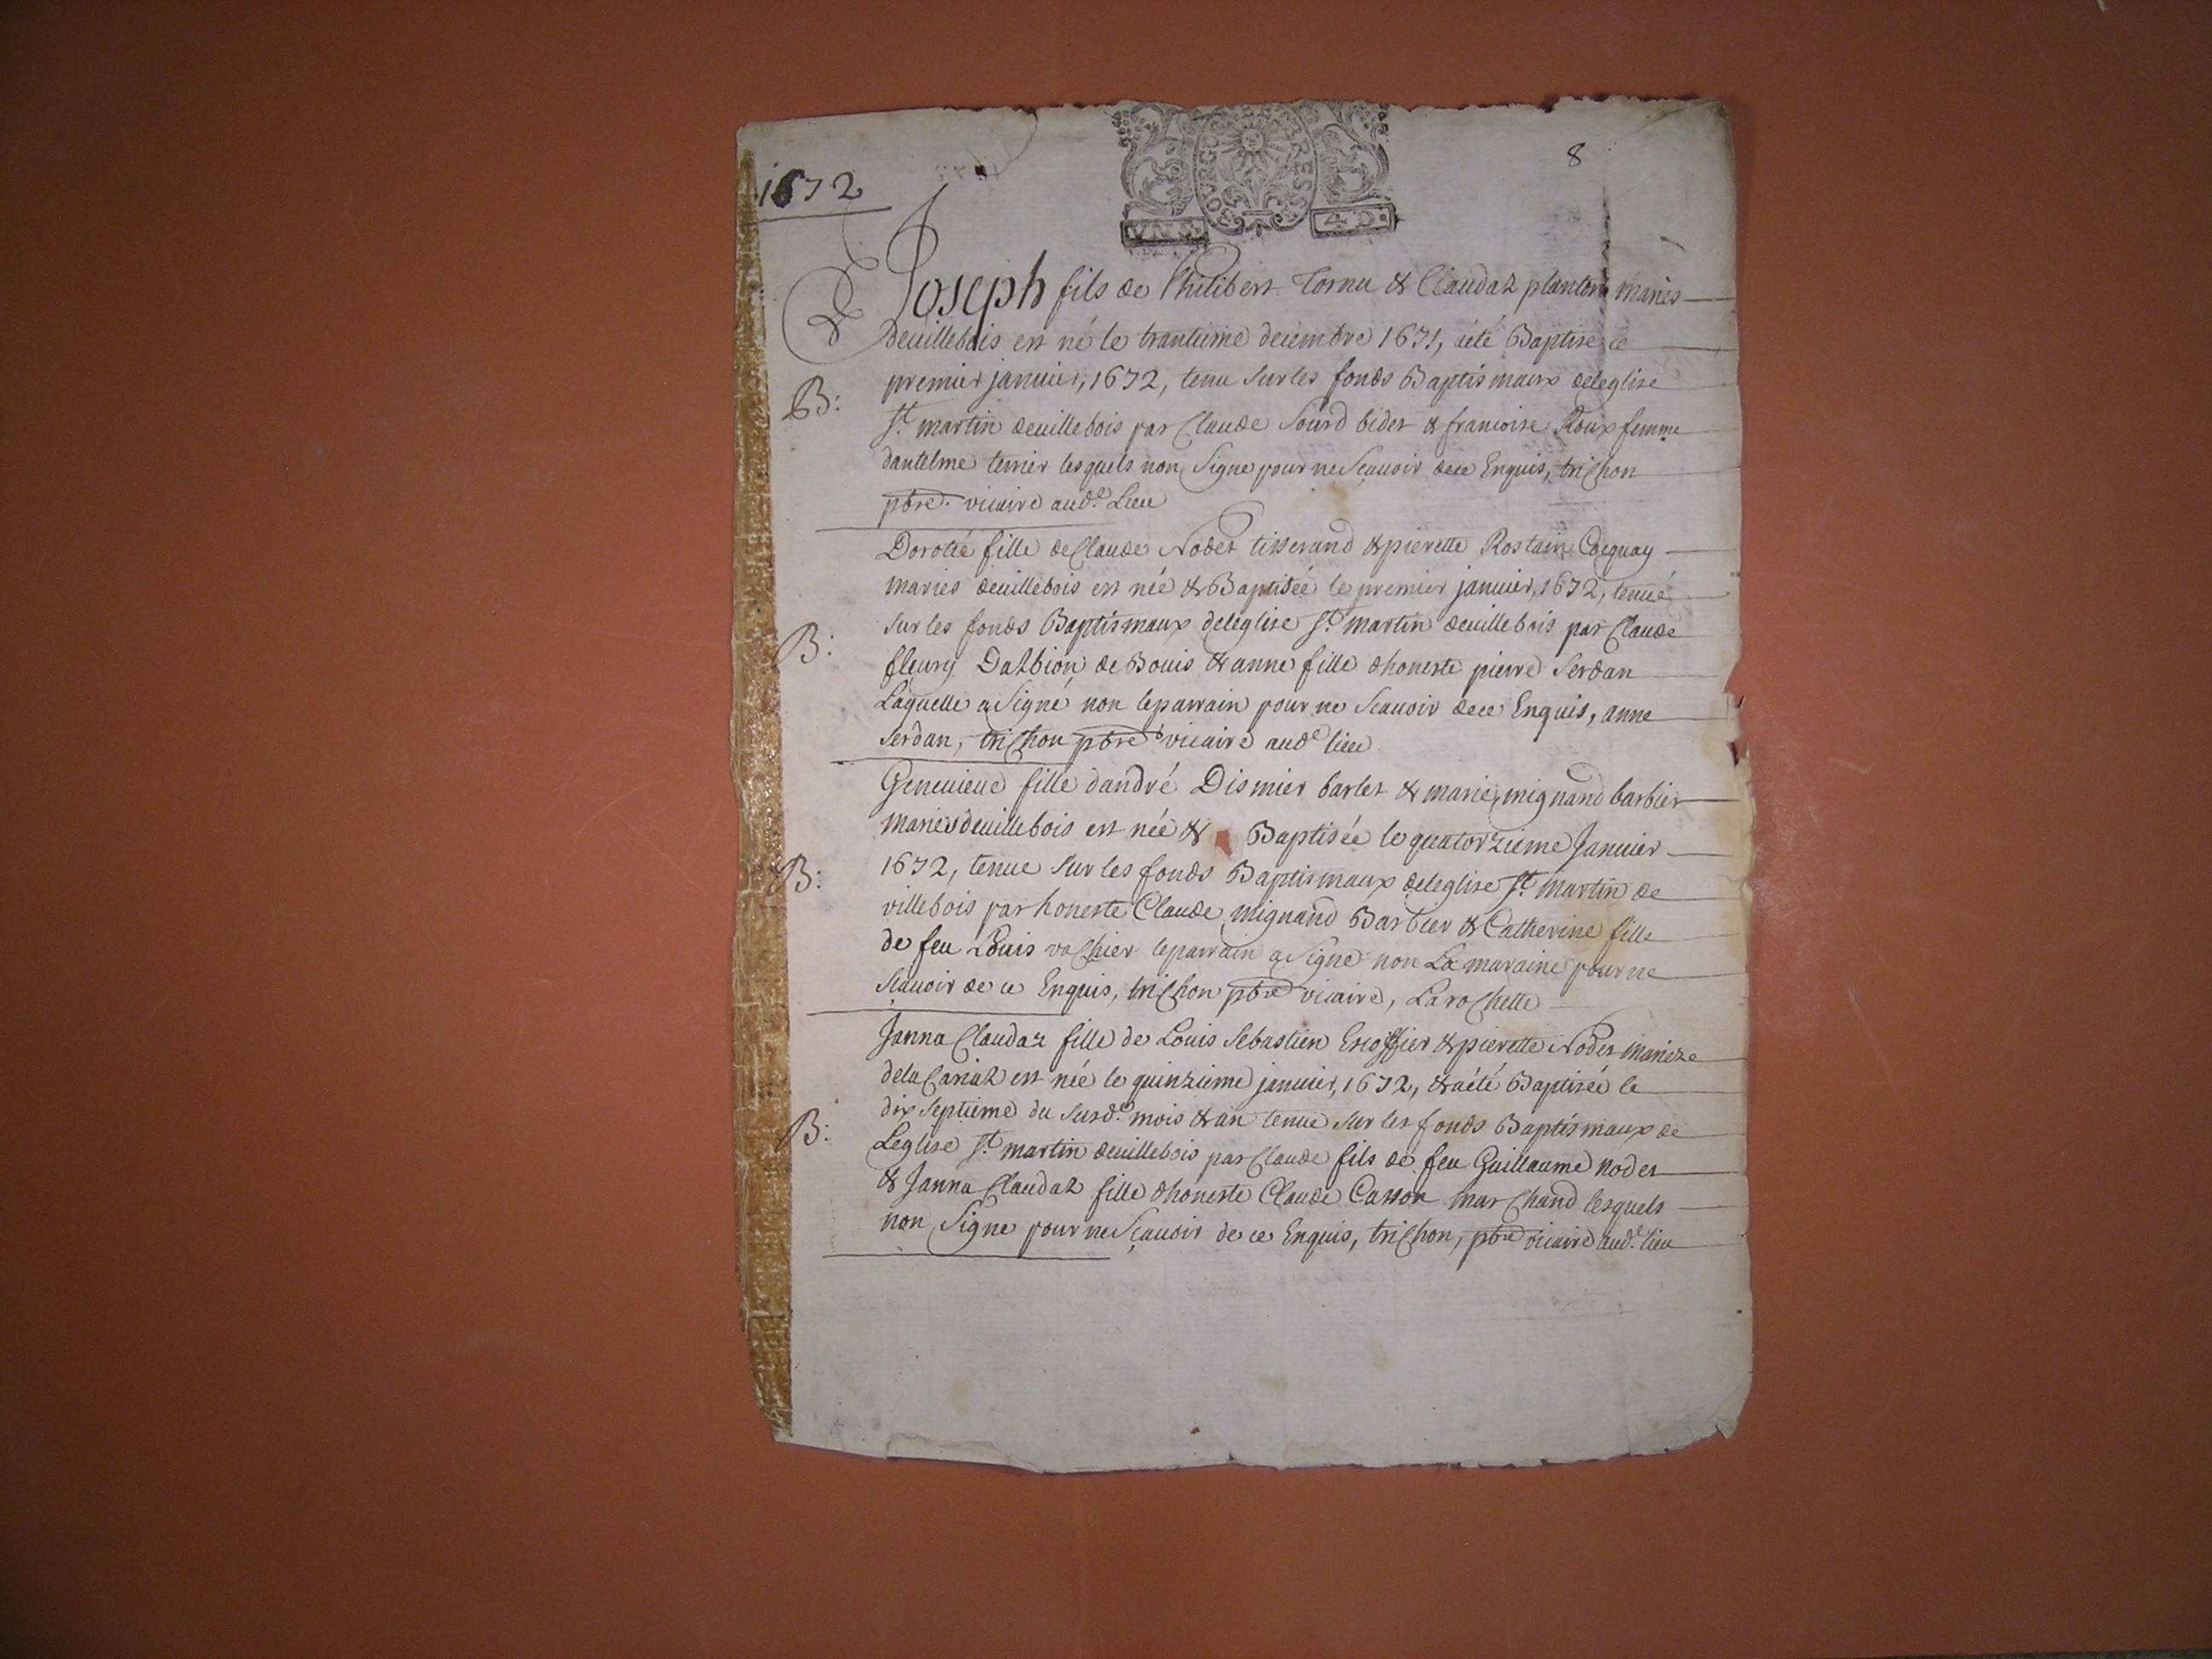 1672
8
BOVRG EN BRESSE
VN S. 4 D.
Joseph fils de Philibert Tornu & Claudaz plantin mariés
deuillebois est né le trantieme decembre 1671, aété Baptisé le
premier januier, 1672, tenu sur les fonds Baptismaux deleglise
B:
St. martin deuillebois par Claude Sourd bidet & francoise Roux femme
dantelme terrier lesquels non Signe pour ne Scauoir dece Enquis, trichon
pbre. vicaire aud.e Lieu
Dorotée fille de Claude Nodet tisserand & pierette Rostain Cocquay
mariés deuillebois est née & Baptisée le premier januier, 1672, tenue
sur les fonds Baptismaux deleglise St. martin deuillebois par Claude
B:
fleury Dalbion de Bouis & anne fille dhoneste pierre Serdan
Laquelle a Signé non leparrain pour ne Scauoir dece Enquis, anne
Serdan, trichon pbre vicaire aud.e lieu
Geneuieue fille dandré Dismier barlet & marie mignand barbier
mariés deuillebois est née & Baptisée le quatorzieme Januier
B:
1672, tenue sur les fonds Baptismaux deleglise St. martin de
villebois par honeste Claude mignand Barbier & Catherine fille
de feu Louis vachier leparrain a Signé non La maraine pour ne
Sçauoir de ce Enquis, trichon pbre vicaire, Larochette
Janna Claudaz fille de Louis Sebastien Excoffier & pierette Nodet marieze
dela Cariaz est née le quinzieme januier, 1672, & aété Baptisée le
dix Septieme du susd.e mois & an tenue sur les fonds Baptismaux de
B:
Leglise St. martin deuillebois par Claude fils de feu Guillaume nodet
& Janna Claudaz fille dhoneste Claude Casson marchand lesquels
non Signe pour ne Sçauoir de ce Enquis, trichon, pbre vicaire aud.e lieu